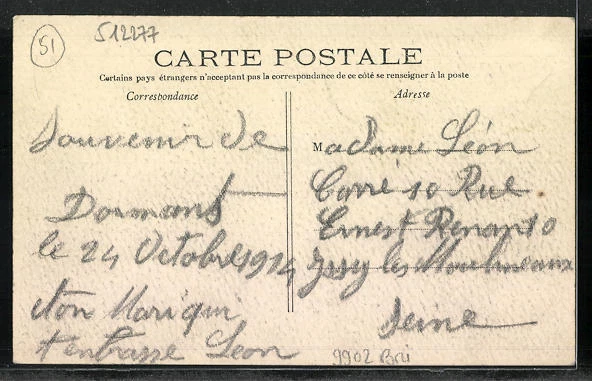 51
512277
CARTE POSTALE
Certains pays étrangers n'acceptant pas la correspondance de ce côté se renseigner à la poste
Correspondance
Adresse
Souvenir de
Dormans
le 24 Octobre 1914
ton Mari qui
t'entrasse Leon
Madame Léon
Carré 10 Rue
Ernest Renan 10
Issy les Moulineaux
Seine
9902 Bri